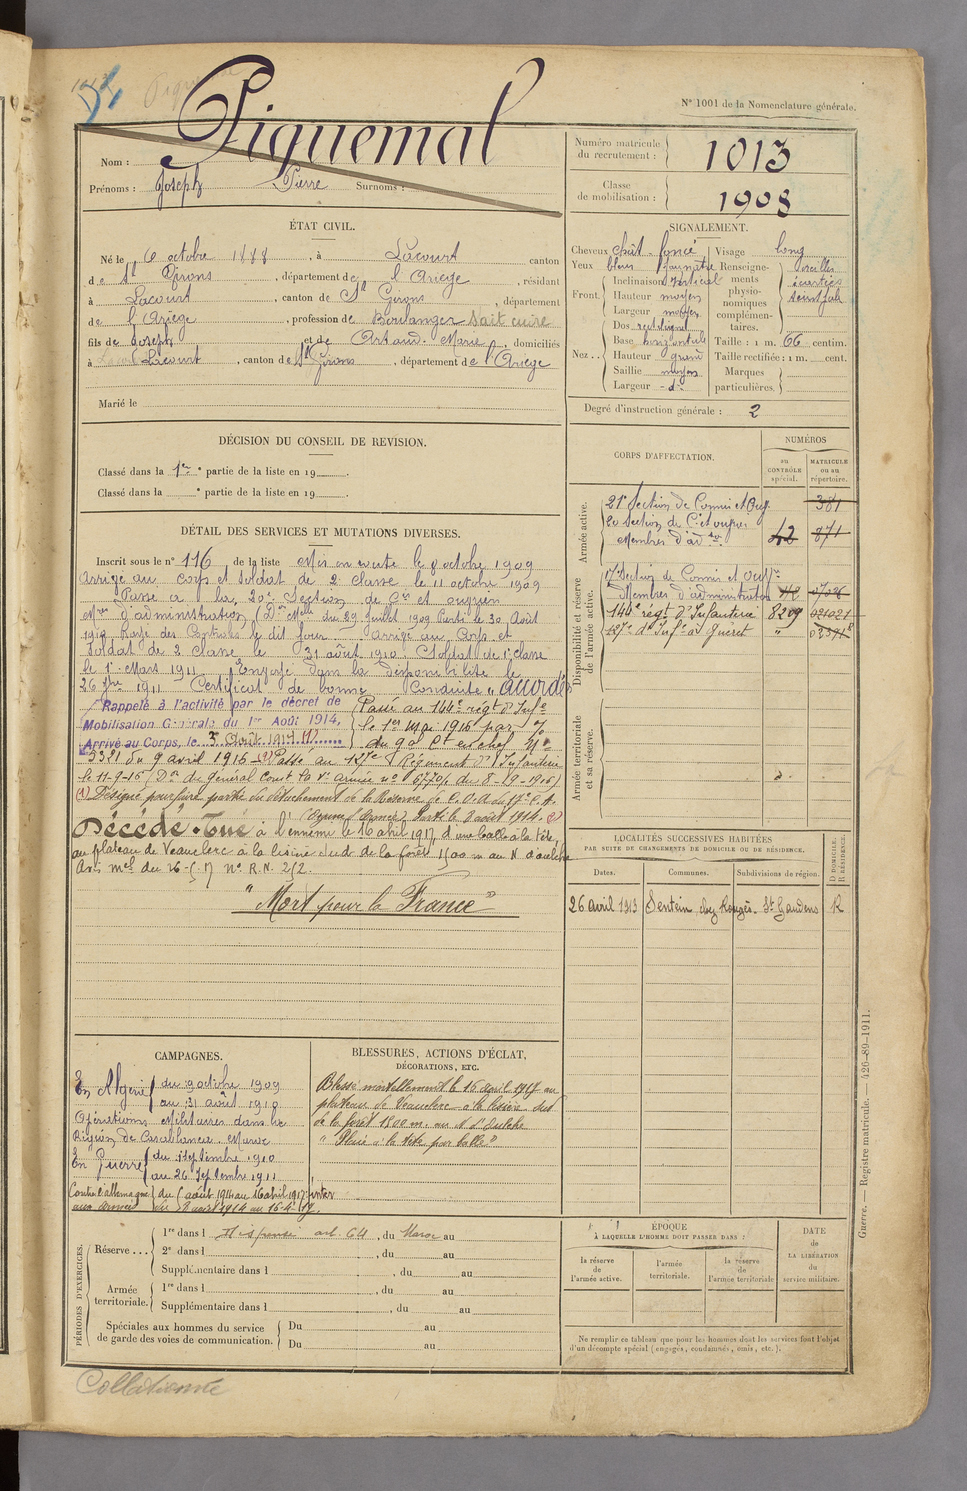 N° 1001 de la Nomenclature générale.
Piquemal
Nom :
Prénoms : Joseph Pierre Surnoms :
Numéro matricule du recrutement : 1013
Classe de mobilisation : 1908
ÉTAT CIVIL.
Né le 6 octobre 1888, à Lacourt canton
de St Girons, département de l'Ariège, résidant
à Lacourt, canton de St Girons, département
de l'Ariège, profession de Boulanger Sait cuire
fils de Joseph et de Artaud Marie, domiciliés
à Lacourt, canton de St Girons, département de l'Ariège
Marié le
SIGNALEMENT.
Cheveux chât. foncé
Yeux bleu jaunâtre
Front. Inclinaison vertical
Hauteur moyen
Largeur moyen
Nez. Dos rectiligne
Base horizontale
Hauteur grand
Saillie moyen
Largeur d°
Visage long
Renseignements physionomiques complémentaires. oreilles écartées
Taille : 1 m. 66 centim.
Taille rectifiée : 1 m. cent.
Marques particulières.
Degré d'instruction générale : 2
DÉCISION DU CONSEIL DE REVISION.
Classé dans la 1re partie de la liste en 19
Classé dans la e partie de la liste en 19
DÉTAIL DES SERVICES ET MUTATIONS DIVERSES.
Inscrit sous le n° 116 de la liste Mis en route le 8 octobre 1909
Arrivé au corps et soldat de 2e classe le 11 octobre 1909
Passé à la 20e Section de Cis et ouvriers
d'administration (Don Mlle du 29 Juillet 1909 Parti le 30 Août
1910 Rayé des Contrôles le dit jour Arrivé au Corps et
Soldat de 2e classe le 31 août 1910 Soldat de 1e classe
le 1er Mars 1911 Envoyé dans la disponibilité le
26 7bre 1911 Certificat de bonne Conduite "accordé"
Rappelé à l'activité par le décret de
Mobilisation Générale du 1er Août 1914,
Arrivé au Corps, le 3 Août 1914 (1)
Passé au 144e régt d'Infie
le 1er mai 1916 par
du Gal Ct en chef No
5321 du 9 avril 1916 (2) Passé au 127e Régiment d'Infanterie
le 11-9-16 (Don du Général Comt la Ve armée n° 6770/1 du 8-9-1916)
(1) Désigné pour faire partie du détachement de la Réserve de C.O.A. du 17e C.A.
Parti le 8 août 1914. (2)
Décédé. Tué à l'ennemi le 16 avril 1917 d'une balle à la tête,
au plateau de Veauclerc à la lisière sud de la forêt 1500 m au N. d'oulche
Avis mel du 26-5-17 n° R.N. 252.
"Mort pour la France"
CORPS D'AFFECTATION.
NUMÉROS
au CONTRÔLE spécial.
MATRICULE ou au répertoire.
Armée active.
21e Section de Commis et Ouv. 381
20 Section de Cis et ouvriers
Membres d'ad. 42 871
Disponibilité et réserve de l'armée active.
17e Section de Commis et Ouvrs
d'administration
144e régt d'Infanterie 8209 021021
127e d'Infie à Guéret "
Armée territoriale et sa réserve.
LOCALITÉS SUCCESSIVES HABITÉES
PAR SUITE DE CHANGEMENTS DE DOMICILE OU DE RÉSIDENCE.
Dates. Communes. Subdivisions de région. D DOMICILE. R RÉSIDENCE.
26 avril 1913 Sentein, chez Rougés. St Gaudens R
CAMPAGNES.
En Algérie du 9 octobre 1909
au 31 août 1910
Opérations Militaires dans la
Région de Casablanca. Maroc
En Guerre du 1 Septembre 1910
au 26 Septembre 1911
Contre l'allemagne du 5 août 1914 au 16 avril 1917 inter
aux armées du 8 août 1914 au 16-4-17.
BLESSURES, ACTIONS D'ÉCLAT,
DÉCORATIONS, ETC.
Blessé mortellement le 16 avril 1917 au
plateau de Veauclerc à la lisière sud
de la forêt 1500 m. au N. d'oulche
"Plaie à la tête par balle"
PÉRIODES D'EXERCICES.
Réserve... 1re dans l Dispensé art. 64, du Maroc au
2e dans l , du au
Supplémentaire dans l , du au
Armée territoriale. 1re dans l , du au
Supplémentaire dans l , du au
Spéciales aux hommes du service
de garde des voies de communication. Du au
Du au
ÉPOQUE
À LAQUELLE L'HOMME DOIT PASSER DANS :
la réserve de l'armée active.
l'armée territoriale.
la réserve de l'armée territoriale
DATE de LA LIBÉRATION du service militaire.
Ne remplir ce tableau que pour les hommes dont les services font l'objet
d'un décompte spécial (engagés, condamnés, omis, etc.).
Guerre. — Registre matricule. — 426-89-1911.
Collationné